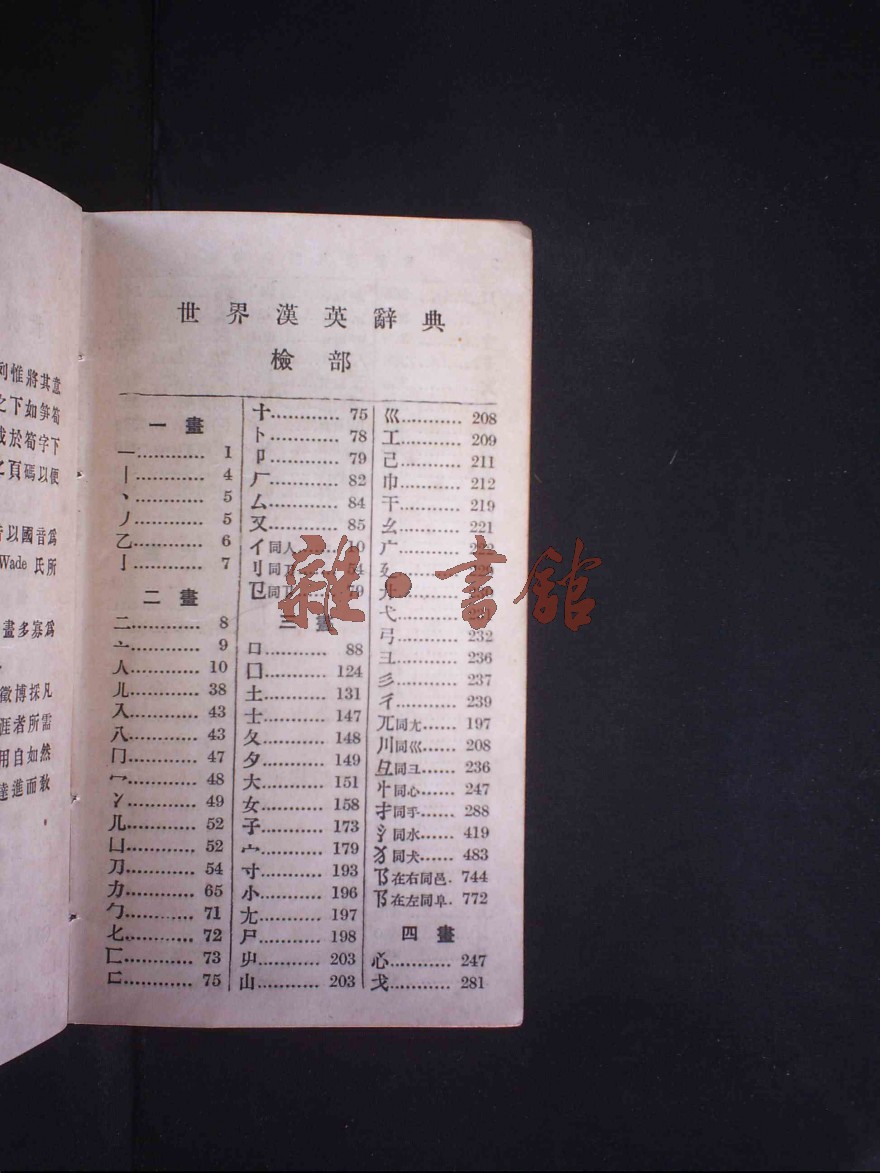 列惟將其意
之下如筍筍
於筍字下
之頁碼以便
以國音爲
Wade 氏所
畫多寡爲
徵博採凡
涯者所需
用自如然
達進而敎
世界漢英辭典
檢部
一畫
一............ 1
丨............ 4
丶............ 5
丿............ 5
乙............ 6
亅............ 7
二畫
二............ 8
亠............ 9
人............ 10
儿............ 38
入............ 43
八............ 43
冂............ 47
冖............ 48
冫............ 49
几............ 52
凵............ 52
刀............ 54
力............ 65
勹............ 71
匕............ 72
匚............ 73
匸............ 75
十............ 75
卜............ 78
卩............ 79
厂............ 82
厶............ 84
又............ 85
亻同人........ 10
刂同刀........ 54
㔾同卩........ 79
三畫
口............ 88
囗............ 124
土............ 131
士............ 147
夂............ 148
夕............ 149
大............ 151
女............ 158
子............ 173
宀............ 179
寸............ 193
小............ 196
尢............ 197
尸............ 198
屮............ 203
山............ 203
巛............ 208
工............ 209
己............ 211
巾............ 212
干............ 219
幺............ 221
广............ 222
廴............
廾............
弋............
弓............ 232
彐............ 236
彡............ 237
彳............ 239
兀同尢...... 197
川同巛...... 208
彑同彐...... 236
忄同心...... 247
扌同手...... 288
氵同水...... 419
犭同犬...... 483
阝在右同邑. 744
阝在左同阜. 772
四畫
心............ 247
戈............ 281
雜·書館